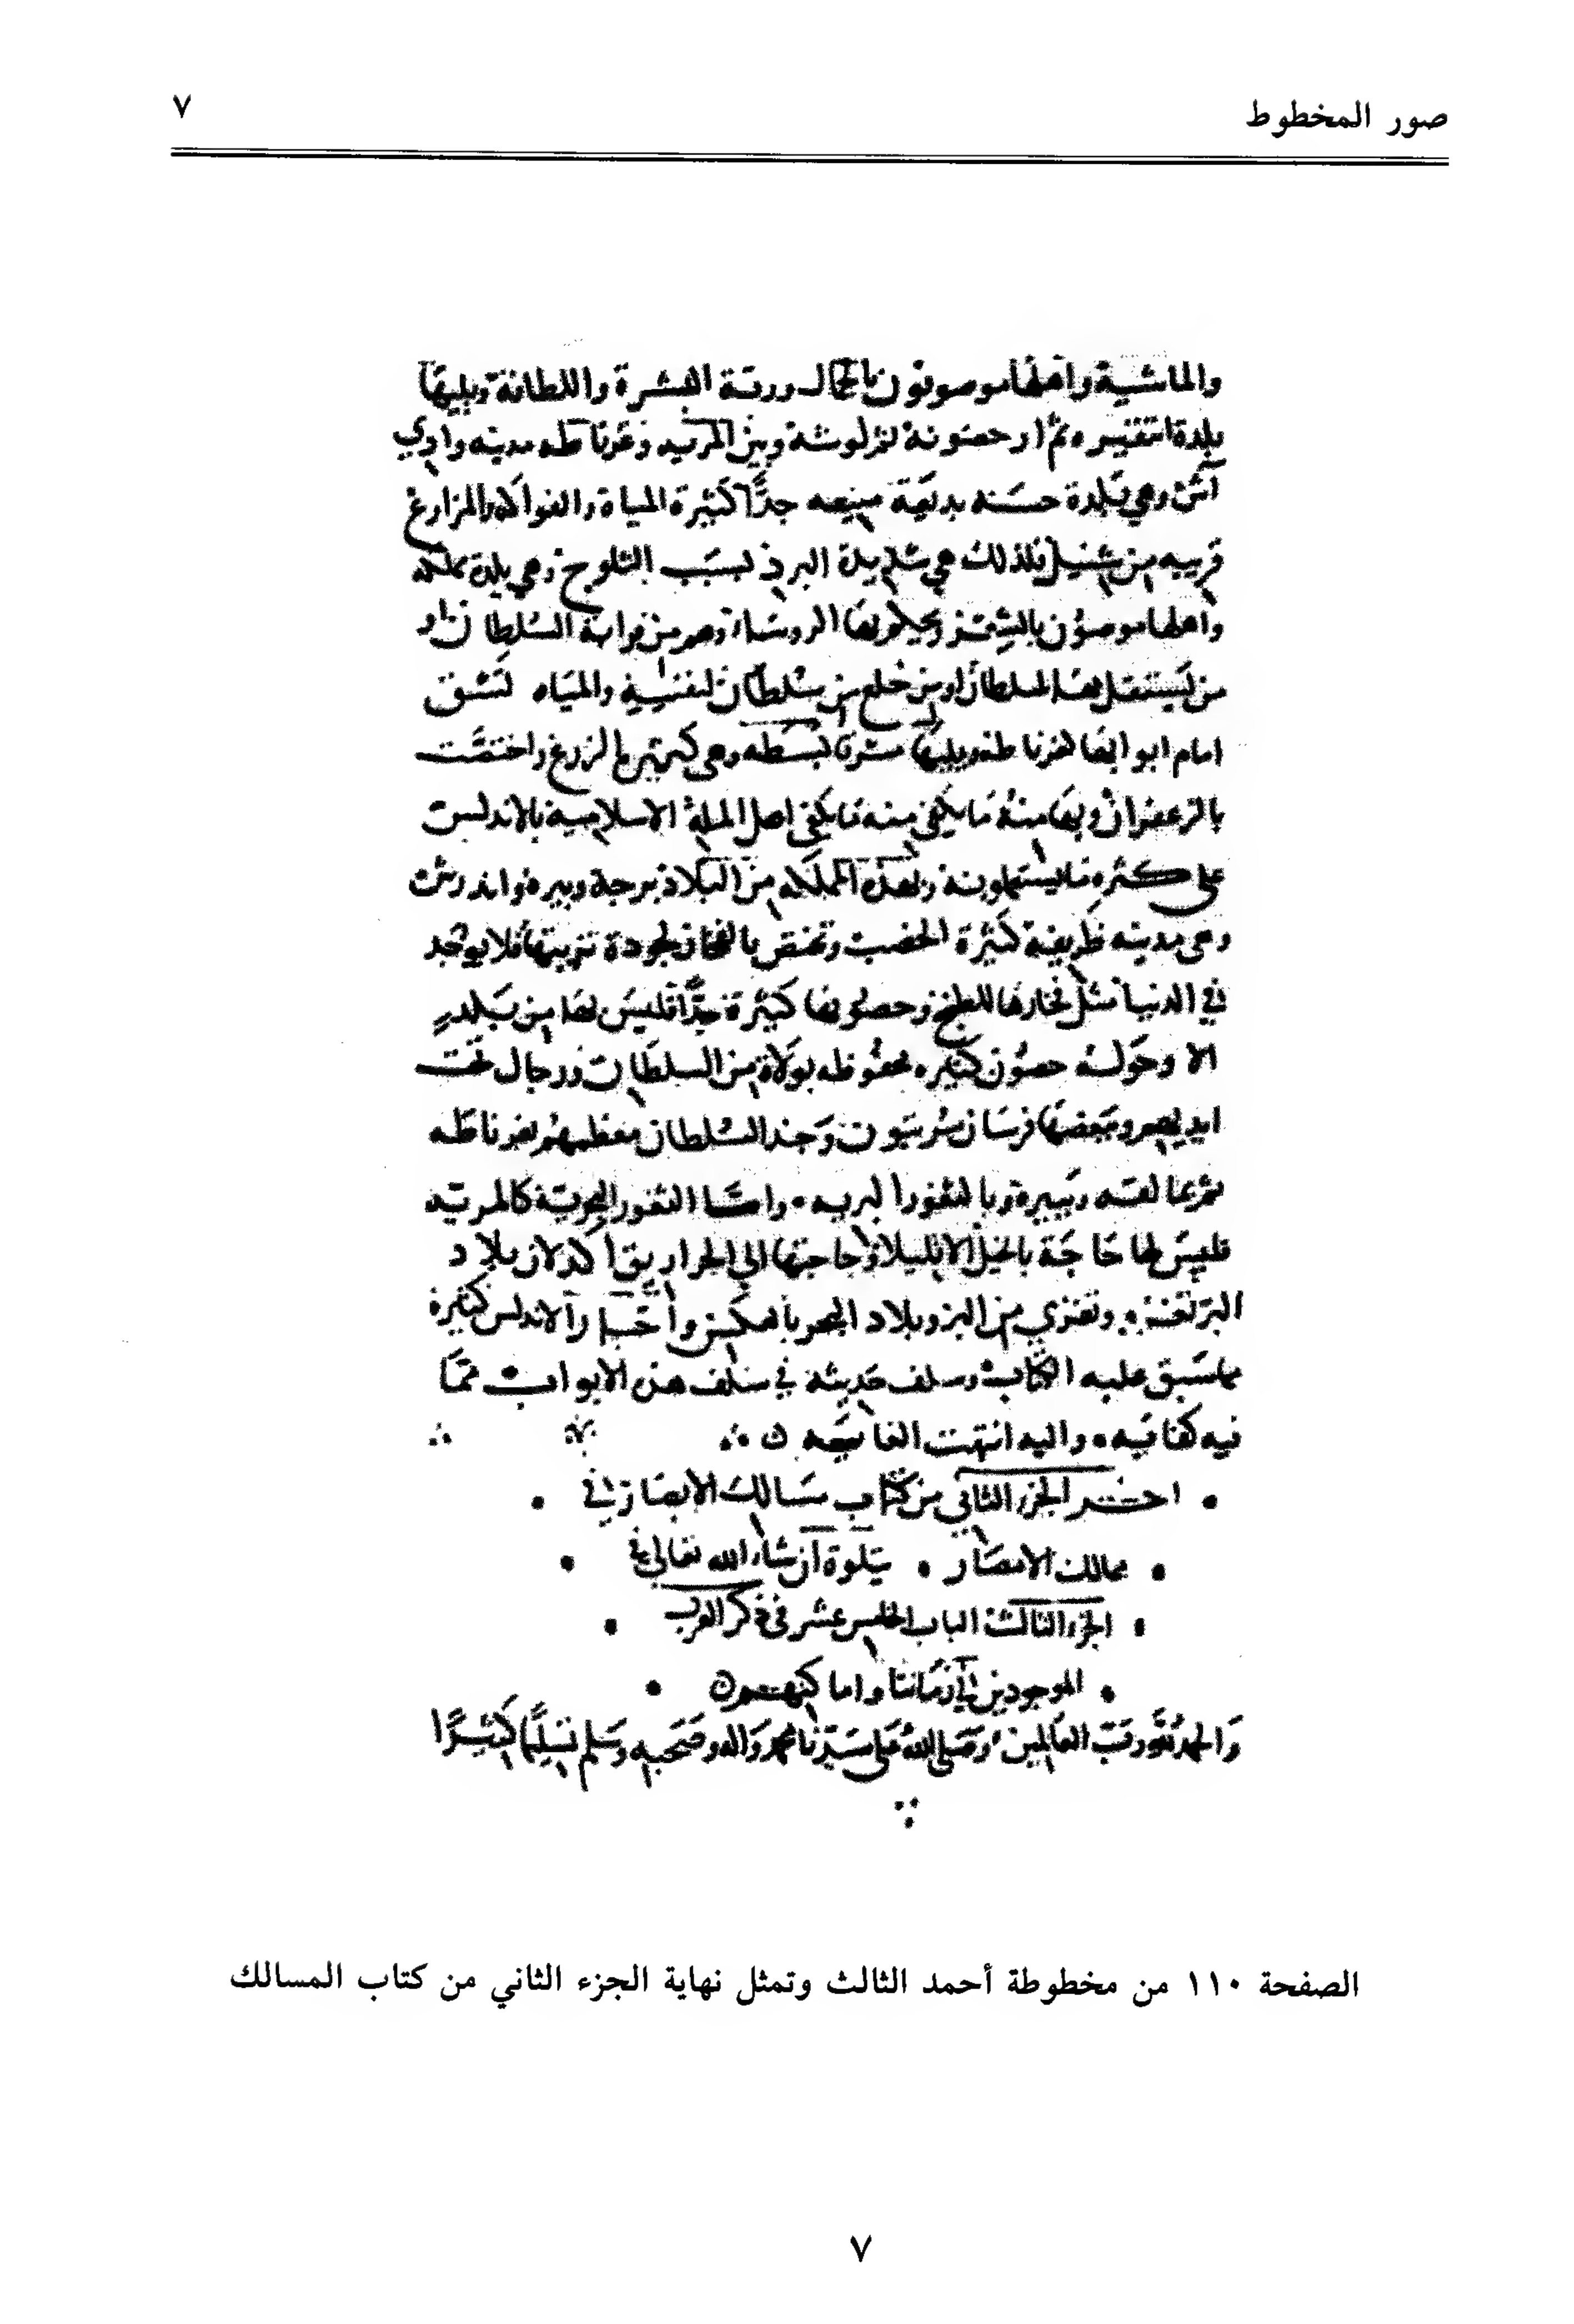 صور المخطوط
٧
والماشية واهلها موصوفون بالجمال ورقة البشرة واللطافة ويليها
بلدة انتقيره ثم ارحصونه ثم لوشة وبين المريه وغرناطه مدينه وادي
آش وهي بلدة حسنه بديعة منيعه جدًّا كثيرة المياة والفواكه والمزارع
قريبه من شنيل فلذلك هي شديدة البرد بسبب الثلوج وهي بلدة مملكه
واهلها موصوفون بالشعر ويحكم بها الروساء وهم من قرابة السلطان او
من يستقل بها السلطان او من خلع من سلطان لنفسه والمياه تشق
امام ابوابها لغرناطه ويليها شرقا بسطه وهي كثيرة الزرع واختصت
بالزعفران وبها منه ما يكفي منه ما يكفي اهل الملة الاسلامية بالاندلس
على كثره ما يستعملونه ولهذه المملكه من البلاد برجة وبيره واندرش
وهي مدينه ظريفة كثيرة الخصب وتختص بالفخار لجودة تربتها فلا يوجد
في الدنيا مثل فخارها للطبخ وحصونها كثيرة جدًّا فليس لها من بلد
الا وحوله حصون كثيره محفوظه بولاة من السلطان ورجال تحت
ايديهم وبعضها فرسان مرتبون وجند السلطان معظمهم بغرناطه
ثم بمالقه وبيرة وبالثغور البريه • واما الثغور البحرية كالمريه
فليس لها حاجة بالخيل الا قليلا وحاجتها الي الحراريق آكد لان بلاد
البر تغزى من البر وبلاد البحر بالعكس وأخبار الاندلس كثيرة
مما سبق عليه الكتاب وسلف حديثه في سالف هذه الابواب مما
فيه كفايه • واليه انتهت الغا يه ن
• اخر الجزء الثاني من كتاب مسالك الابصار في •
• ممالك الامصار • يتلوة ان شاء الله تعالى في •
• الجزء الثالث الباب الخامس عشر في ذكر العرب •
• الموجودين في زماننا واماكنهم •
والحمد لله رب العالمين وصلى الله على سيدنا محمد واله وصحبه وسلم تسليما كثيرًا
الصفحة ١١٠ من مخطوطة أحمد الثالث وتمثل نهاية الجزء الثاني من كتاب المسالك
٧